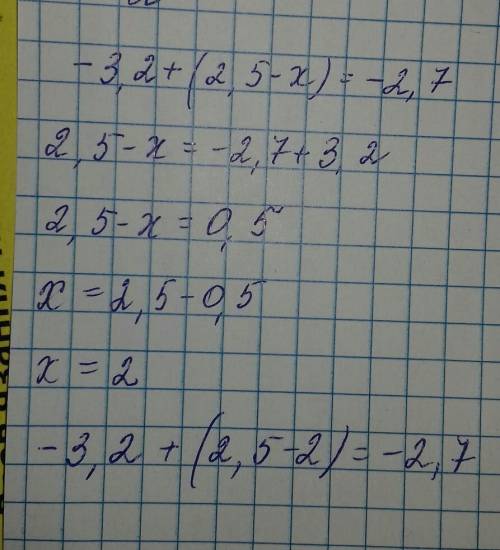 -3,2+(2,5-x)=-2,7
2,5-x=-2,7+3,2
2,5-x=0,5
x=2,5-0,5
x=2
-3,2+(2,5-2)=-2,7